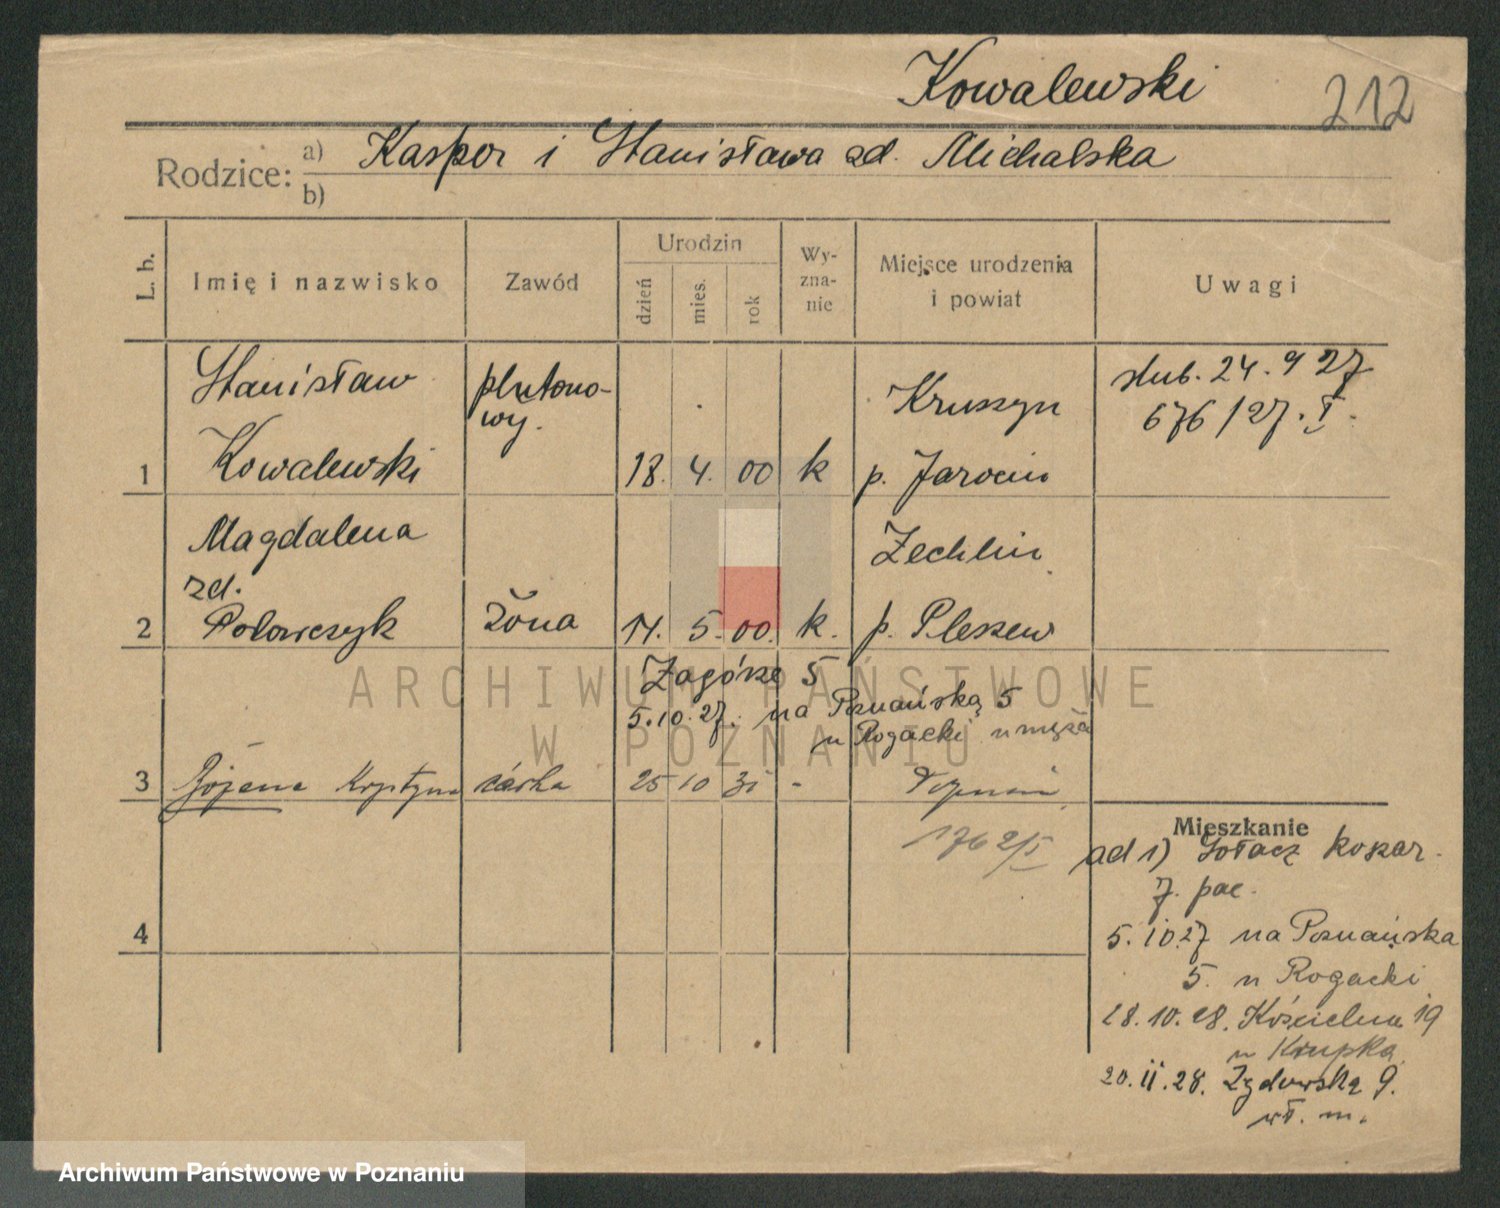 Kowalewski
212
Rodzice: a) Kasper i Stanisława zd. Michalska
b)
L. b.
Imię i nazwisko
Zawód
Urodzin
dzień
mies.
rok
Wy-
zna-
nie
Miejsce urodzenia
i powiat
Uwagi
1
Stanisław
Kowalewski
plutono-
wy.
18. 4. 00
k
Kruszyn
p. Jarocin
ślub. 24. 9 27
676/27. I.
2
Magdalena
zd.
Polowczyk
żona
14. 5. 00.
k.
Zechlin
p. Pleszew
Zagórze 5
5.10.27. na Poznańską 5
u Rogacki u męża
3
Krystyna
córka
25 10 31
-
Poznań
4
Mieszkanie
ad 1) Sołacz koszar.
7. pac.
5.10.27 na Poznańska
5. u Rogacki
28.10.28. Kościelna 19
u Krupka
20.11.28.
9.
wł. m.
ARCHIWUM PAŃSTWOWE
W POZNANIU
Archiwum Państwowe w Poznaniu